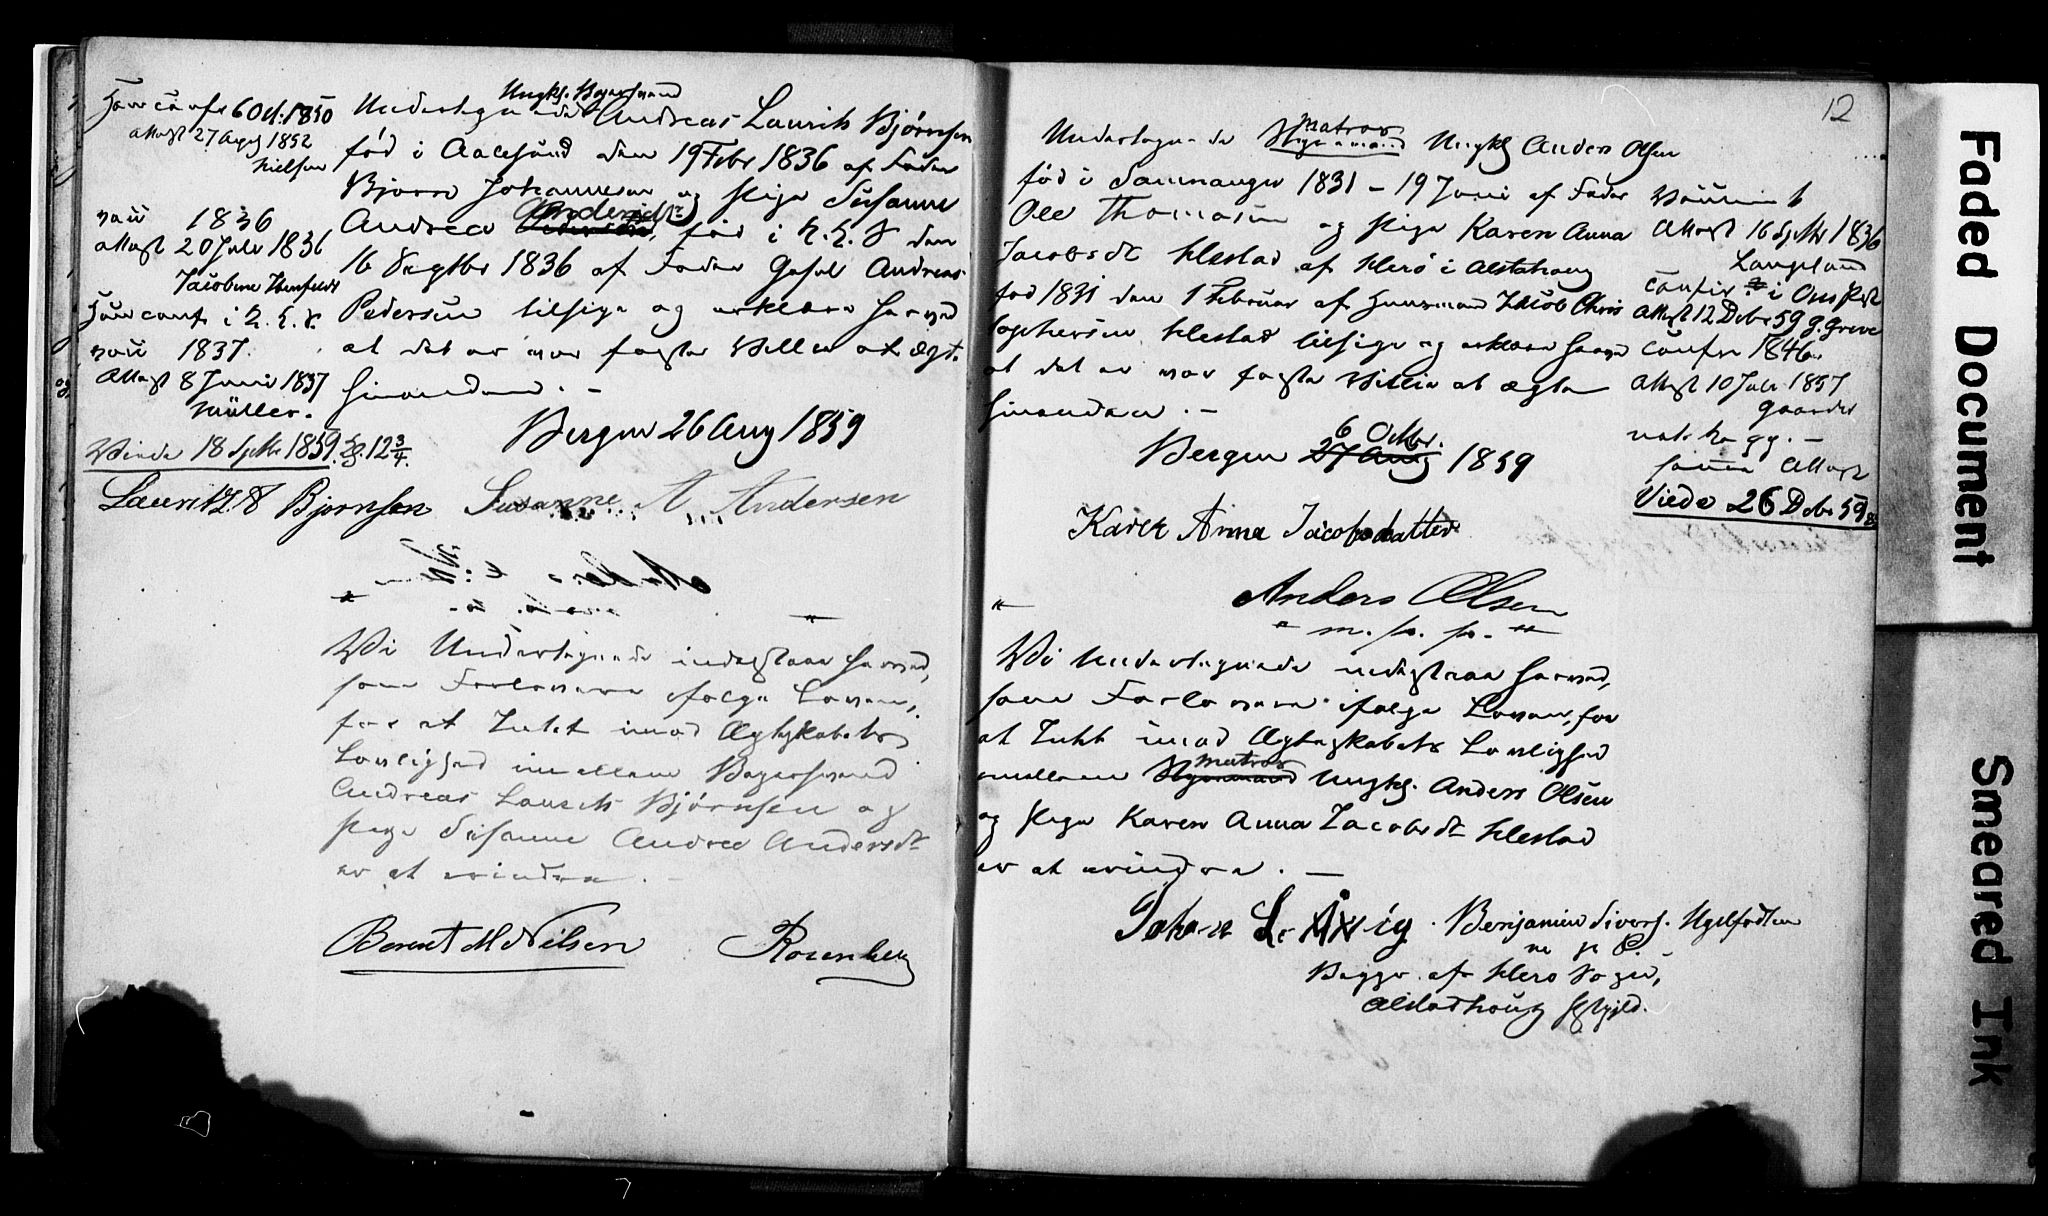 Han conf 6 Oct. 1850
Attest 27 Aug 1852
Nielsen
vacc 1836
Attest 20 Juli 1836
Jacobine
Hun conf i
vacc 1837.
Attest 8 Juni 1837
Müller.
Viede 18 Septbr 1859. 12 3/4.
Ungk. Bøgersvend
Undertegnede Andreas Laurits Bjørnsen
fød i Aalesund den 19 Febr 1836 af Fader
Bjørn Johannesen og Pige Susanne
Andrea Andersdt. fød i den
16 Septbr 1836 af Fader Andreas
Pedersen tilsige og erklære herved
at det er vor faste Villie at ægte
hinanden. –
Bergen 26 Aug 1859
Lauritz Bjørnsen Susanne A Andersen
Vi Undertegnede indestaae herved,
som Forlovere ifølge Loven,
for at Intet imod Ægteskabets
Lovlighed imellem Bøgersvend
Andreas Laurits Bjørnsen og
Pige Susanne Andrea Andersdt
er at erindre. –
Berent M Nilsen Rosenberg
12
Undertegnede Matros Ungk Anders Olsen
fød i Samnanger 1831 – 19 Juni af Fader
Ole Thomasen og Pige Karen Anna
Jacobsdt Hestad af Herø i Alstahoug
fød 1831 den 1 Februar af Huusmand Jacob Chris
tophersen Hestad tilsige og erklære herved
at det er vor faste Villie at ægte
hinanden. –
6 Octbr.
Bergen 27 Aug 1859
Karen Anna Jacobsdatter
Anders Olsen
m. p. p.
Vi Undertegnede indestaae herved,
som Forlovere ifølge Loven, for
at Intet imod Ægteskabets Lovlighed
Matros
mellem Ungk. Anders Olsen
og Pige Karen Anna Jacobsdt Hestad
er at erindre. –
Johan L. Benjamin Sivers.
Begge af Herø Sogn,
Alstahoug Præstgjeld.
Attest 16 Septbr 1836
Langeland
confir. i Ous Præst
Attest 12 Debr 59 G. Greve
Confir 1846
Attest 10 Juli 1857
Gaarder
samme Attest
Viede 26 Debr 59
Faded Document
Smeared Ink